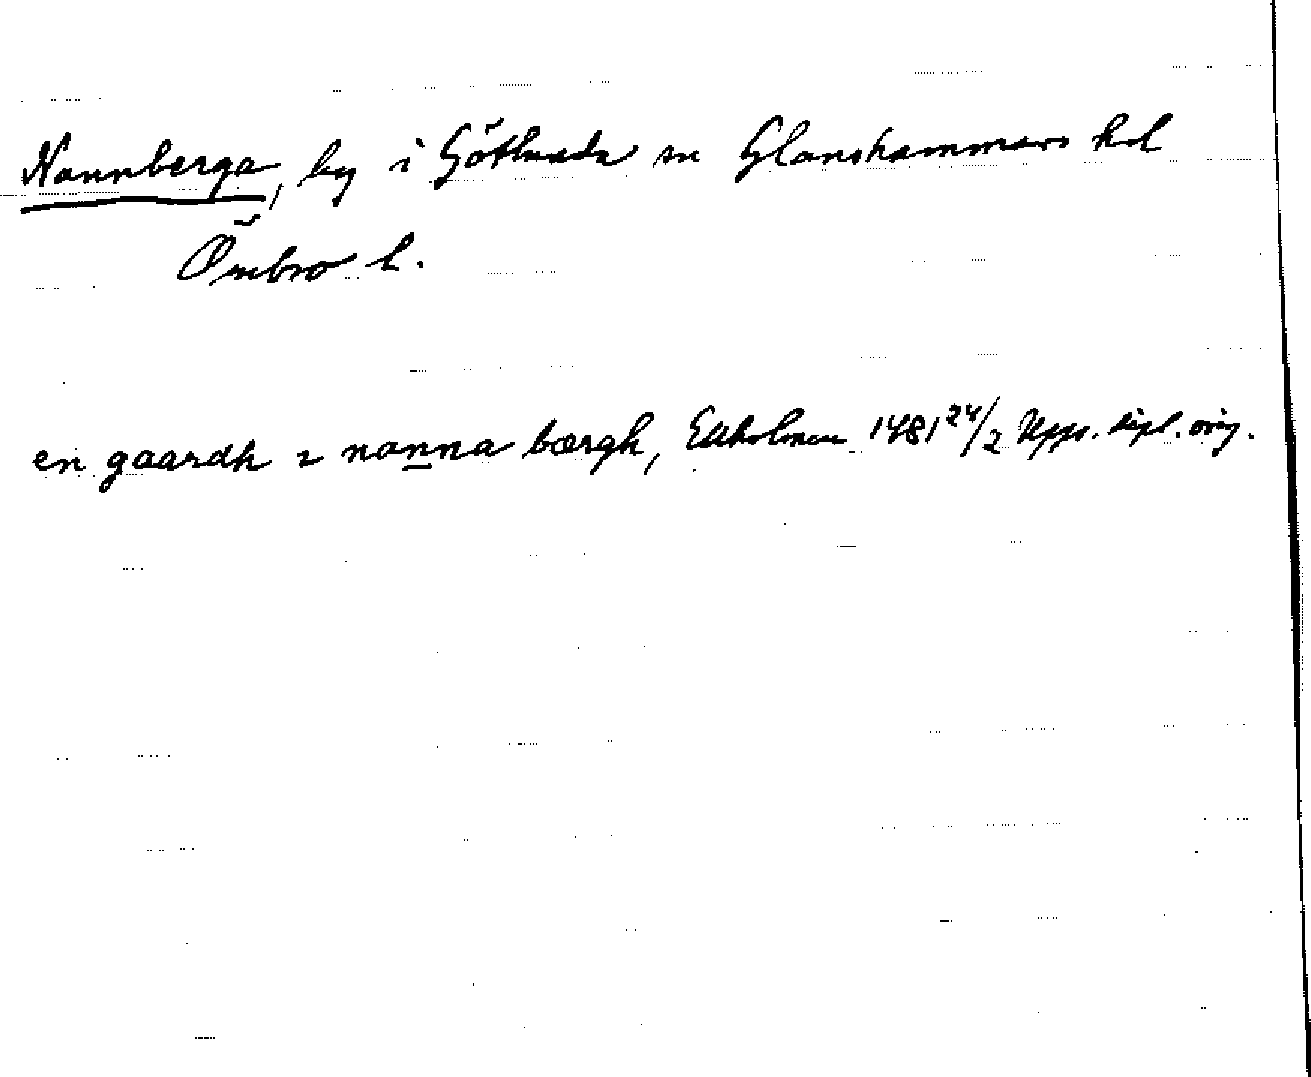 Nannberga, by i Götlunda sn Glanshammars hd
Örebro l.
en gaardh i nanna bærgh, Ekholmen 1481 24/2 Upps. dipl. orig.